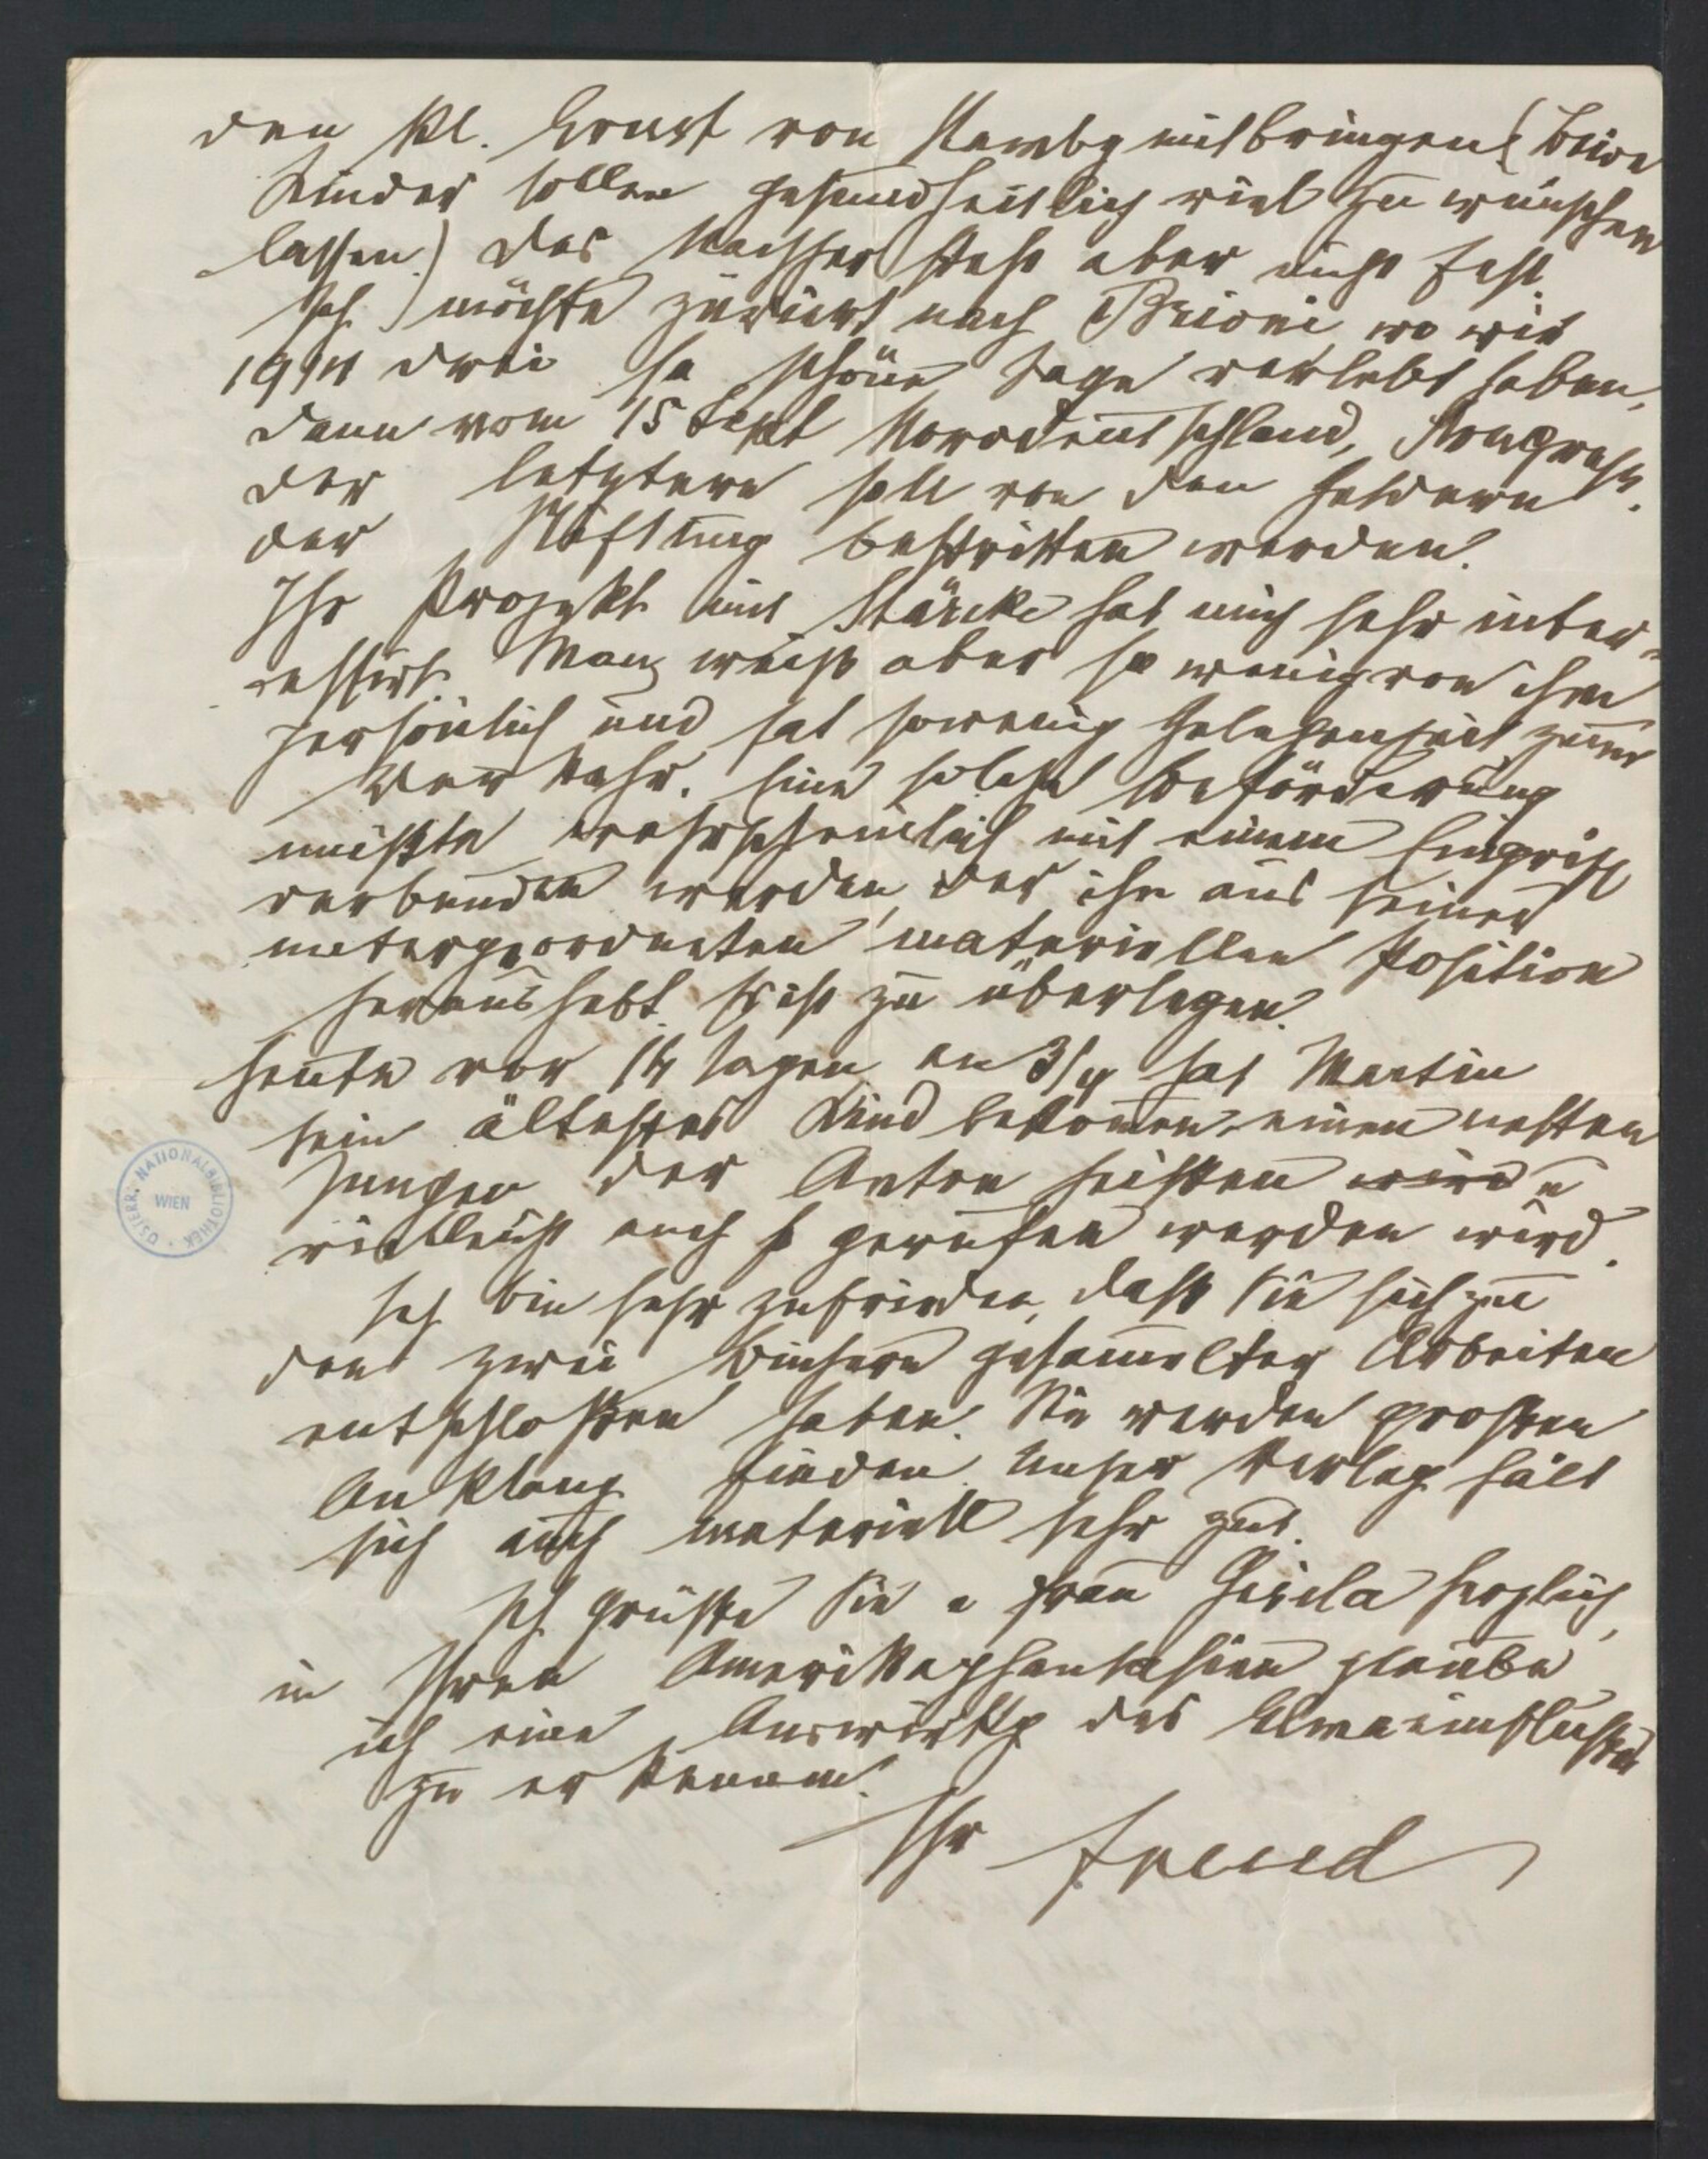 den kl. Ernst von Hambg mitbringen (Beide
Kinder sollen gesundheitlich viel zu wünschen
lassen.) Das Nachher steht aber nicht fest.
Ich möchte zuerst nach Brioni, wo wir
1914 drei so schöne Tage verlebt haben,
dann vom 15 Sept Norddeutschland, Kongress.
Der letztere soll von den Geldern
der Stiftung bestritten werden.
Ihr Projekt mit Stärcke hat mich sehr inter-
essirt. Man weiß aber so wenig von ihm
persönlich und hat sowenig Gelegenheit zum
Verkehr. Eine solche Beförderung
müßte wahrscheinlich mit einem Eingriff
verbunden werden, der ihn aus seiner
untergeordneten materiellen Position
heraushebt. Es ist zu überlegen.
Heute vor 14 Tagen, am 3/4 hat Martin
sein ältestes Kind bekommen, einen netten
Jungen der Anton heißen wird u
vielleicht auch so gerufen werden wird.
Ich bin sehr zufrieden, daß Sie sich zu
den zwei Büchern gesammelter Arbeiten
entschloßen haben. Sie werden großen
Anklang finden. Unser Verlag hält
sich auch materiell sehr gut.
Ich grüße Sie u Frau Gisela herzlich,
in Ihren Amerikaphantasien glaube
ich eine Auswirkg des Elmaeinflußes
zu erkennen.
Ihr Freud
ÖSTERR. NATIONALBIBLIOTHEK
WIEN